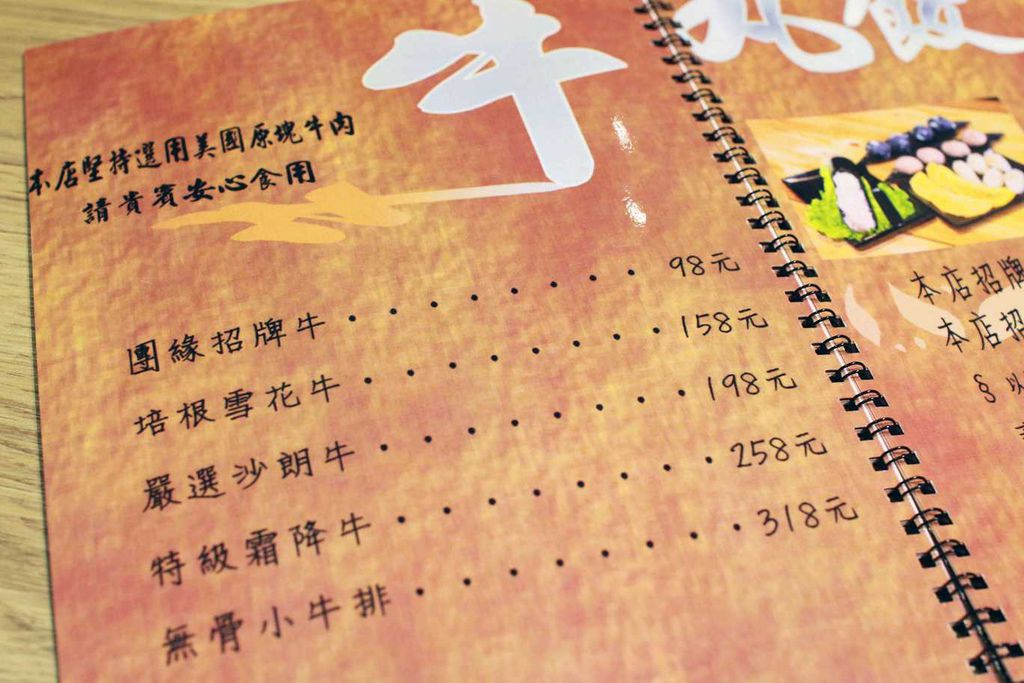 牛
本店堅持選用美國原塊牛肉
請貴賓安心食用
團緣招牌牛・・・・・・・・98元
培根雪花牛・・・・・・・・158元
嚴選沙朗牛・・・・・・・・198元
特級霜降牛・・・・・・・・258元
無骨小牛排・・・・・・・・318元
本店招牌
本店招
§ 以